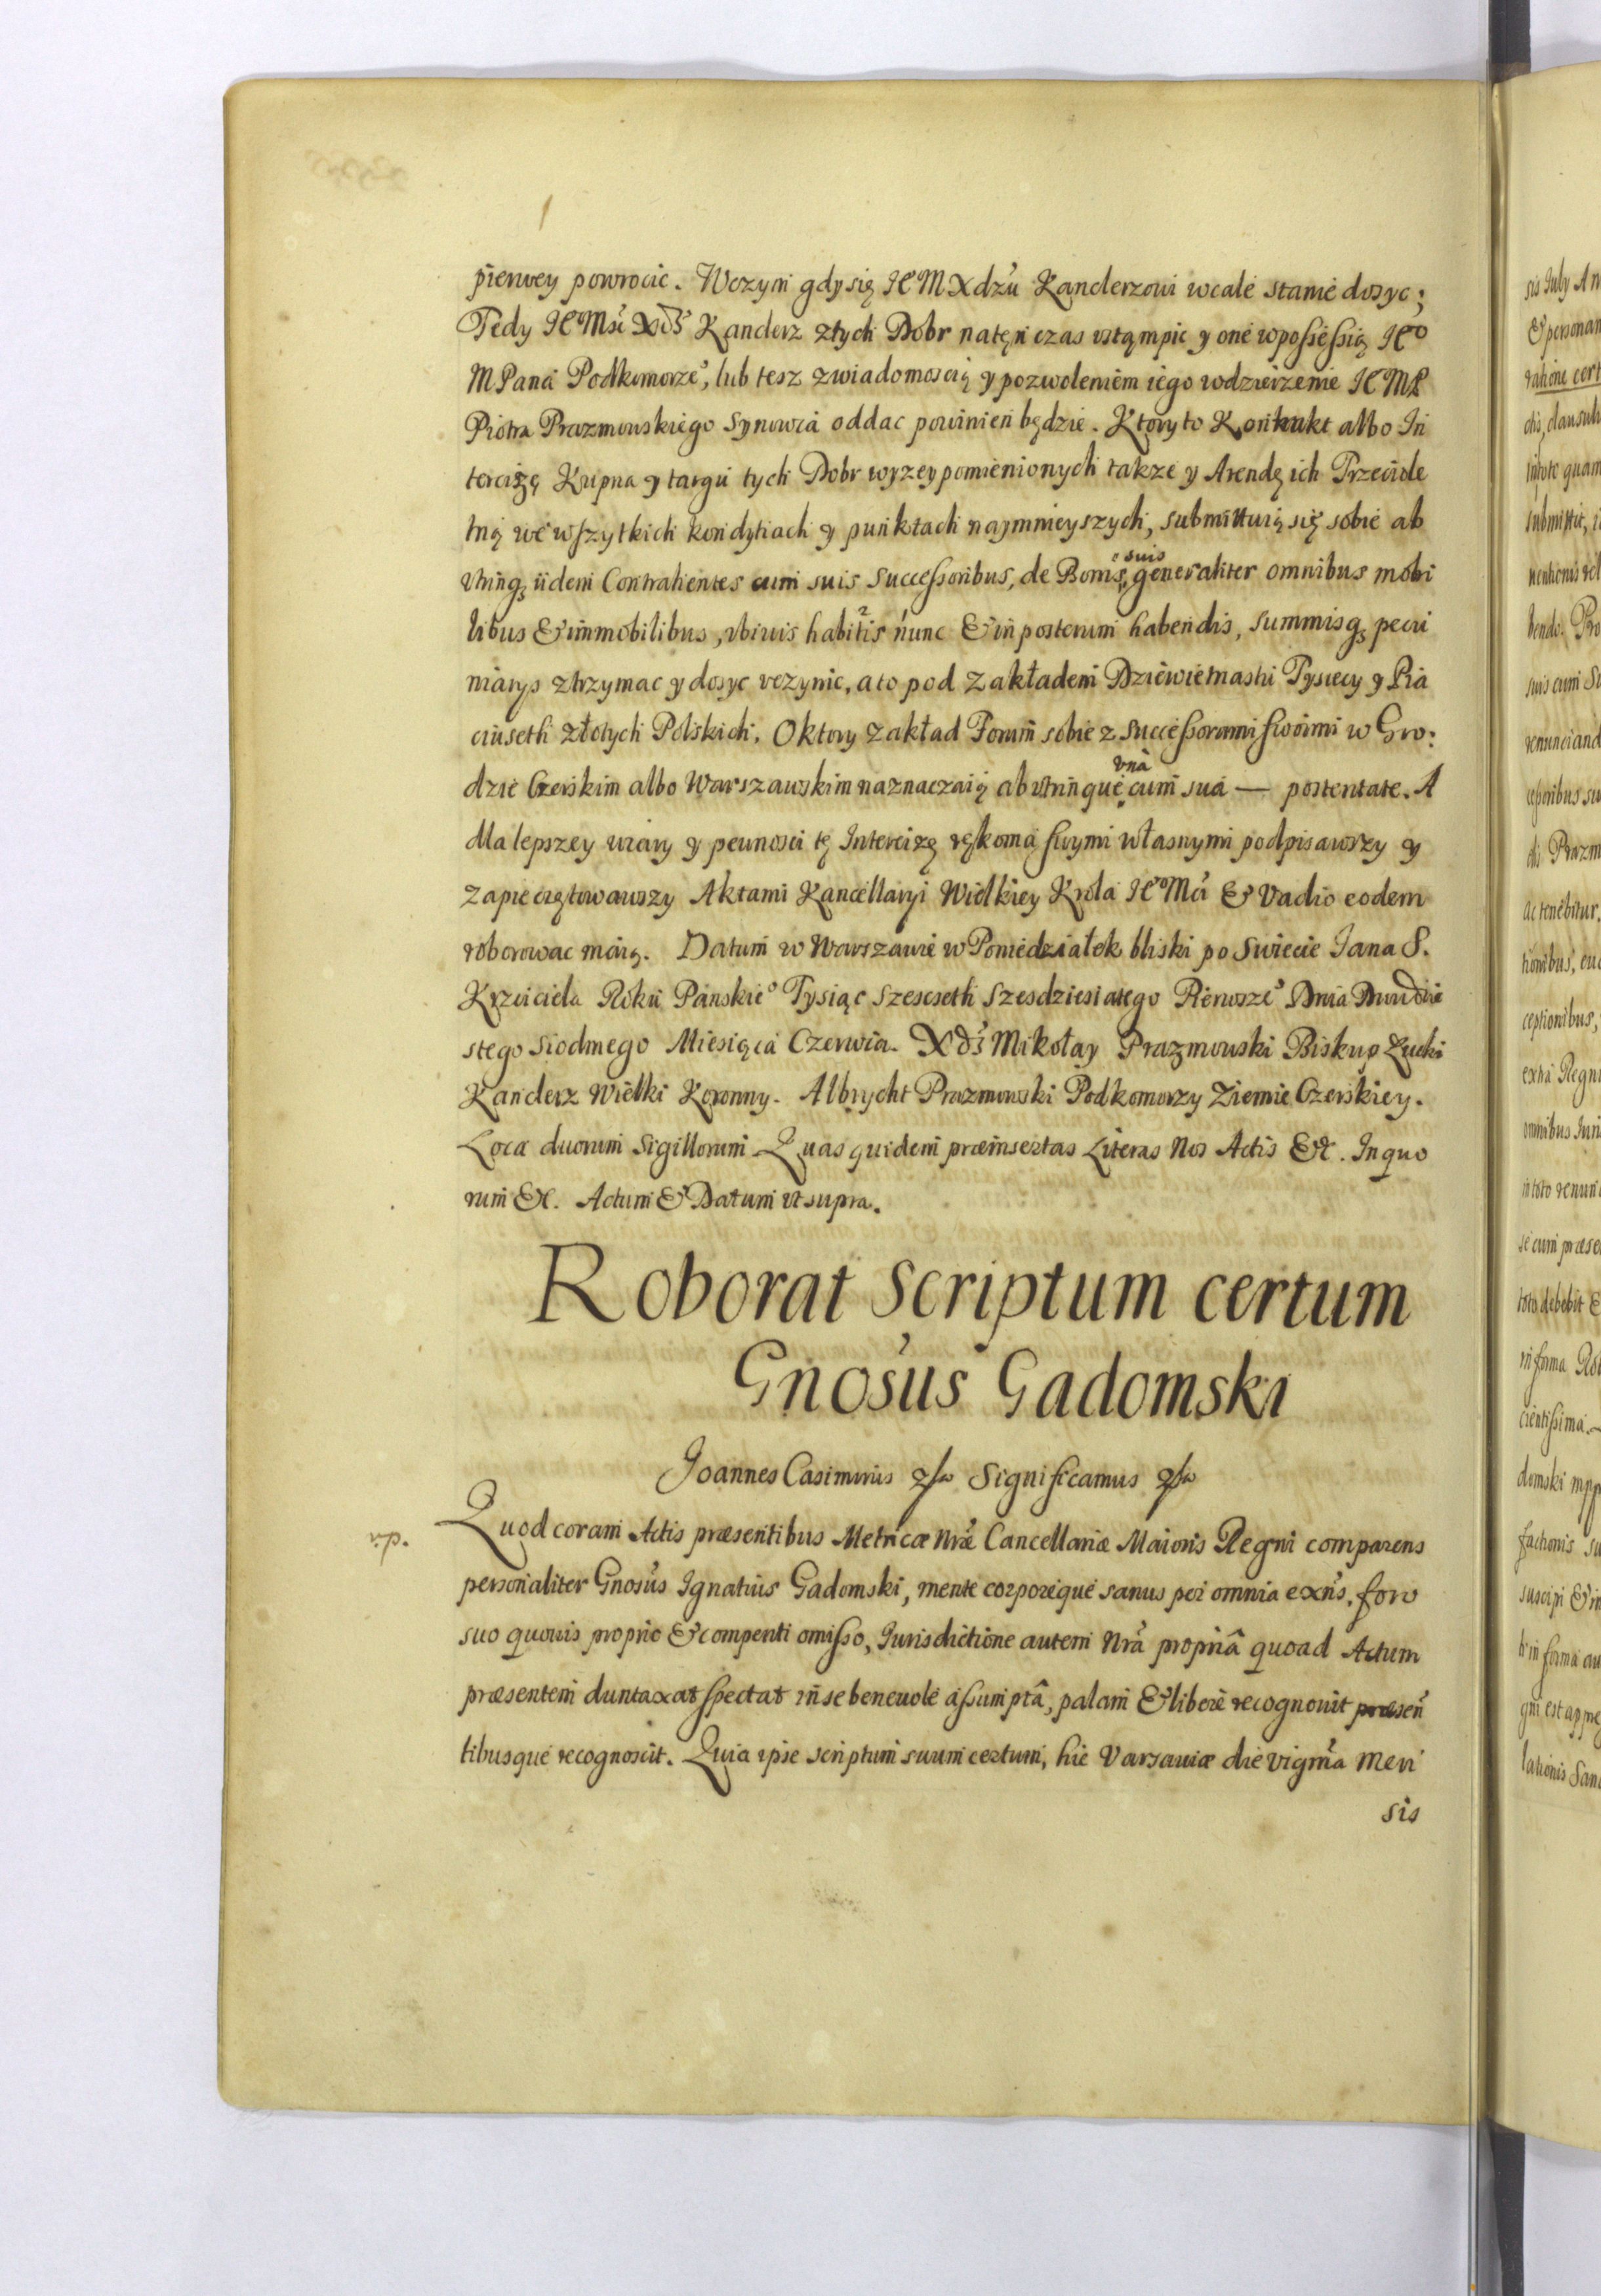 pierwey powrocic. W czym gdy się JeM Xdzu Kanclerzowi wcale stanie dosyc;
Tedy JeMsci Xdz Kanclerz z tych Dobr natęn czas ustąmpic y one w possessią Je°
M Pana Podkomorze°, lub tesz z wiadomoscią y pozwoleniem iego w dzierzenie JeMP
Piotra Prazmowskiego Synowca oddac powinien będzie. Ktory to Kontrakt albo In
tercizę Kupna y targu tych Dobr wyzey pomienionych takze y Arendę ich Przeciole
tnią we wszytkich kondytiach y punktach naymnieyszych, submittuią się sobie ab
utrinq iidem Contrahentes cum suis Successoribus, de Bonis suis generaliter omnibus mobi
libus & immobilibus, ubiuis habitis nunc & in posterum habendis, summisq pecu
niarys ztrzymac y dosyc uczynic, a to pod Zakładem Dziewietnastu Tysiecy y Pia
ciuseth złotych Polskich. O ktory Zakład Forum sobie z Successorami swoimi w Gro:
dzie Czerskim albo Warszawskim naznaczaią ab utrinque una cum sua — posteritate. A
dla lepszey wiary y pewnosci tę Intercizę rękoma swymi własnymi podpisawszy y
zapieciętowawszy Aktami Kancellaryi Wielkiey Krola Je°Mci & Vadio eodem
roborowac maią. Datum w Warszawie w Poniedziałek bliski po Swiecie Jana S.
Krzciciela Roku Panskie° Tysiąc szescseth szesdziesiatego Pierwsze° Dnia Dwudzie
stego siodmego Miesiąca Czerwca. Xdz Mikołay Prazmowski Biskup Łucki
Kanclerz Wielki Koronny. Albrycht Prazmowski Podkomorzy Ziemie Czerskiey.
Loca duorum Sigillorum Quas quidem præinsertas Literas Nos Actis &c. In quo
rum &c. Actum & Datum ut supra.
Roborat Scriptum certum
Gnosus Gadomski
Joannes Casimirus Significamus
Quod coram Actis præsentibus Metricæ Nræ Cancellariæ Maioris Regni comparens
personaliter Gnosus Ignatius Gadomski, mente corporeque sanus per omnia exns, foro
suo quouis proprio & compenti omisso, Jurisdictione autem Nrâ propriâ quoad Actum
præsentem duntaxat spectat in se beneuole assumptâ, palam & libere recognouit præsen
tibusque recognoscit. Quia ipse scriptum suum certum, hic Varsauiæ die vigma Men
sis